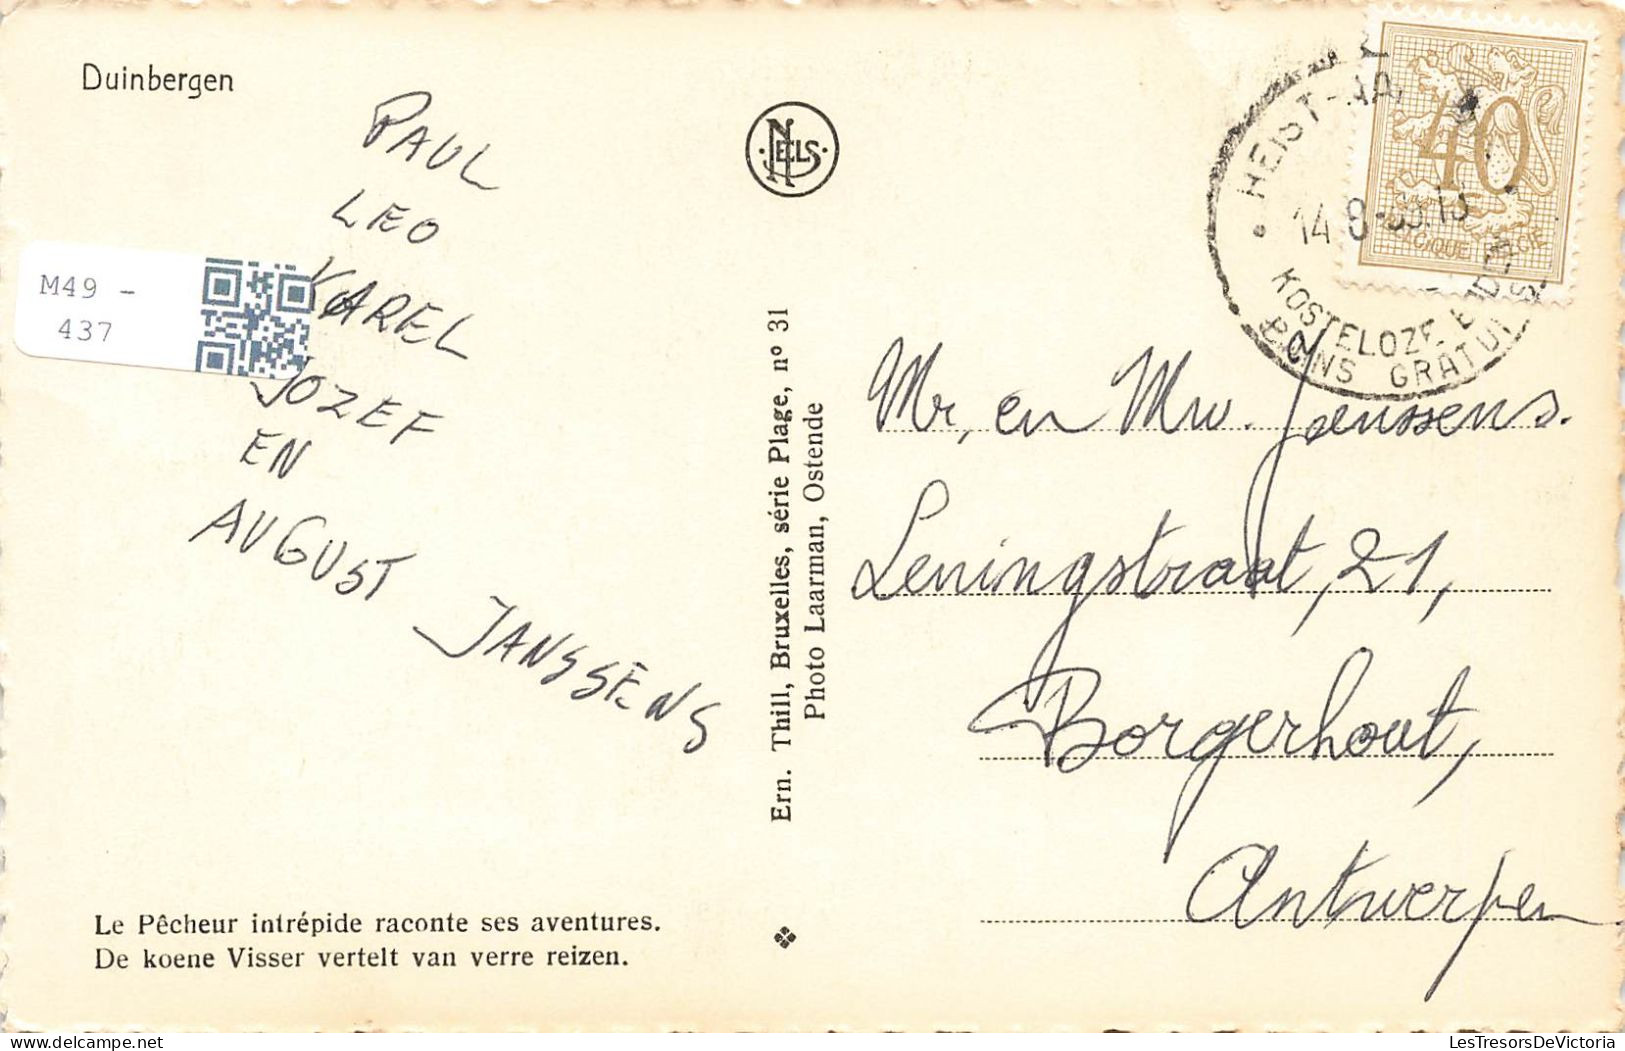 Duinbergen
PAUL
LEO
KAREL
JOZEF
EN
AUGUST JANSSENS
M49 -
437
Le Pêcheur intrépide raconte ses aventures.
De koene Visser vertelt van verre reizen.
NELS
Ern. Thill, Bruxelles, série Plage, nº 31
Photo Laarman, Ostende
HEIST-AA
14 8
KOSTELOZE
BAINS GRATUI
40
BELGIQUE BELGIE
Mr, en Mw. Janssens.
Leningstraat, 21,
Borgerhout,
Antwerpen
LesTresorsDeVictoria
delcampe.net